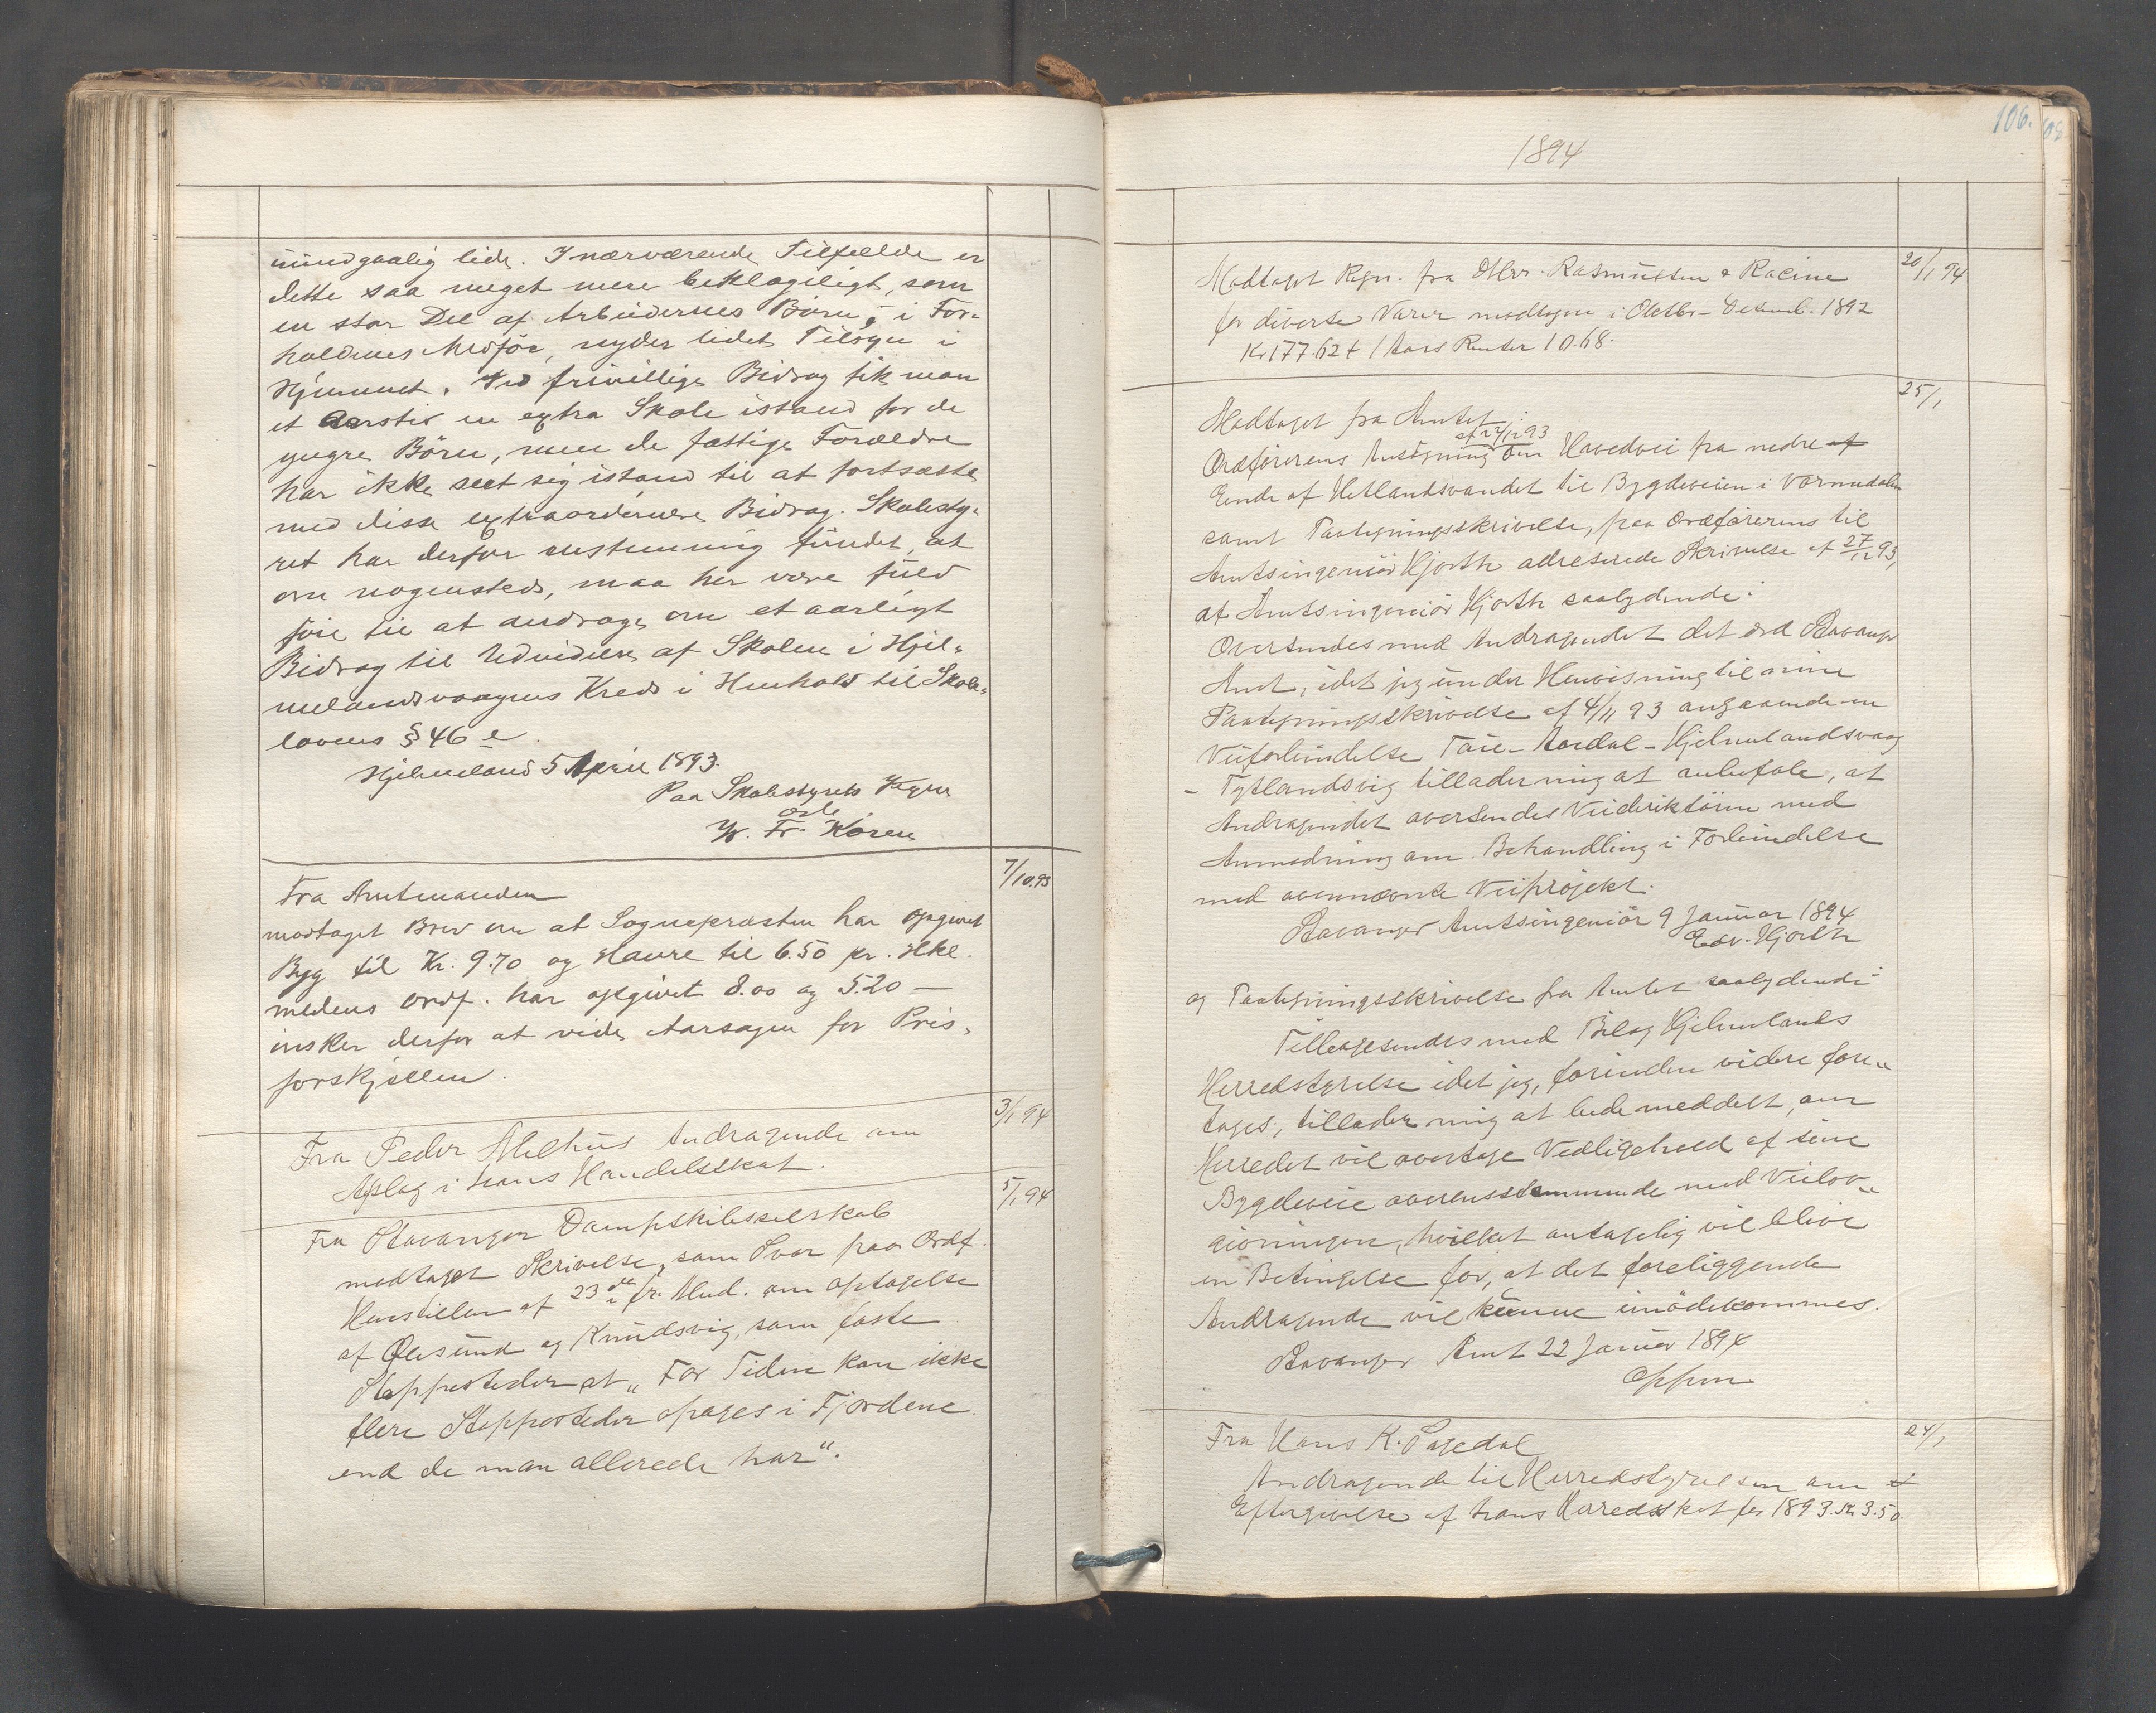 uundgaalig lide. I nærværende Tilfælde er
dette saa meget mere beklageligt, som
en stor Del af Arbeidernes Børn, i For-
holdenes Medfør, nyder lidet Tilsyn i
Hjemmet. Ved frivillige Bidrag fik man
et Aarstid en extra Skole istand for de
yngre Børn, men de fattige Forældre
har ikke seet sig istand til at fortsætte
med disse extraordinære Bidrag. Skolesty-
ret har derfor enstemmig fundet, at
om nogensteds, maa her være fuld
føie til at andrage om et aarligt
Bidrag til Udvidelse af Skolen i Hjel-
melandsvaagens Kreds i Henhold til Skole-
lovens § 46 e.
Hjelmeland 5 April 1893.
Paa Skolestyrets Vegne
Fr. Koren
7/10.93
Fra Amtmanden
modtaget Brev om at Sognepræsten har opgivet
Byg til Kr. 9.70 og Havre til 6.50 pr. Hkl.
medens Ordf. har opgivet 8.00 og 5.20 —
ønsker derfor at vide Aarsagen for Pris-
forskjellen.
3/1 94
Fra Peder Melhus Andragende om
Afslag i hans Handelsskat.
5/1 94
Fra Stavanger Dampskibsselskab
modtaget Skrivelse, som Svar paa Ordf.
Henstillen af 23de f. Mnd. om optagelse
af Øksund og Knudsvig, som faste
Stoppesteder at „For Tiden kan ikke
flere Stoppesteder opages i Fjordene
end de man allerede har“.
106.
1894
20/1 94
Modtaget Regn. fra DHrr. Rasmussen & Racine
for diverse Varer modtagne i Oktbr - Desemb. 1892
Kr 177.62 + 1 Aars Renter 10.68.
25/1
Modtaget fra Amtet:
af 27/12 93
Ordførerens Ansøgning om Hovedvei fra nedre af
Ende af Hetlandsvandet til Bygdeveien i Vormedalen
samt Paategningsskrivelse, paa Ordførerens til
Amtsingeniør Hjorth adreserede Skrivelse af 27/12 93,
af Amtsingeniør Hjorth saalydende:
Oversendes med Andragendet det ærd Stavanger
Amt, idet jeg under Henvisning til min
Paategningsskrivelse af 4/11 93 angaaende en
Veiforbindelse Tøie - Aardal - Hjelmelandsvaag
- Tytlandsvig tillader mig at anbefale, at
Andragendet oversendes Veidirektøren med
Anmodning om Behandling i Forbindelse
med ovennævnte Veiprojekt.
Stavanger Amtsingeniør 9 Januar 1894
Edv. Hjorth
og Paategningsskrivelse fra Amtet saalydende:
Tilbagesendes med Bilag Hjelmelands
Herredstyrelse idet jeg, forinden videre fore-
tages, tillader mig at bede meddelt, om
Herredet vil overtage Vedligehold af sine
Bygdeveie overensstemmende med Veilov-
givningen, hvilket antagelig vil blive
en Betingelse for, at det foreliggende
Andragende vil kunne imødekommes.
Stavanger Amt 22 Januar 1894
Oppen
24/1
Fra Hans K. Pagedal
Andragende til Herredstyrelsen om
Eftergivelse af hans Herredsskat for 1893. Kr 3.50.